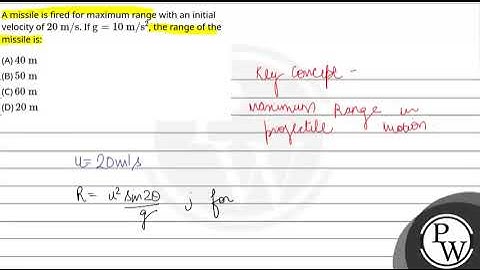 A missile is fired for maximum range with an initial
velocity of 20 m/s. If g = 10 m/s², the range of the
missile is:
(A) 40 m
(B) 50 m
(C) 60 m
(D) 20 m
Key Concept -
Maximum Range in
projectile motion
u = 20m/s
R = u² sin2θ / g ; for
PW